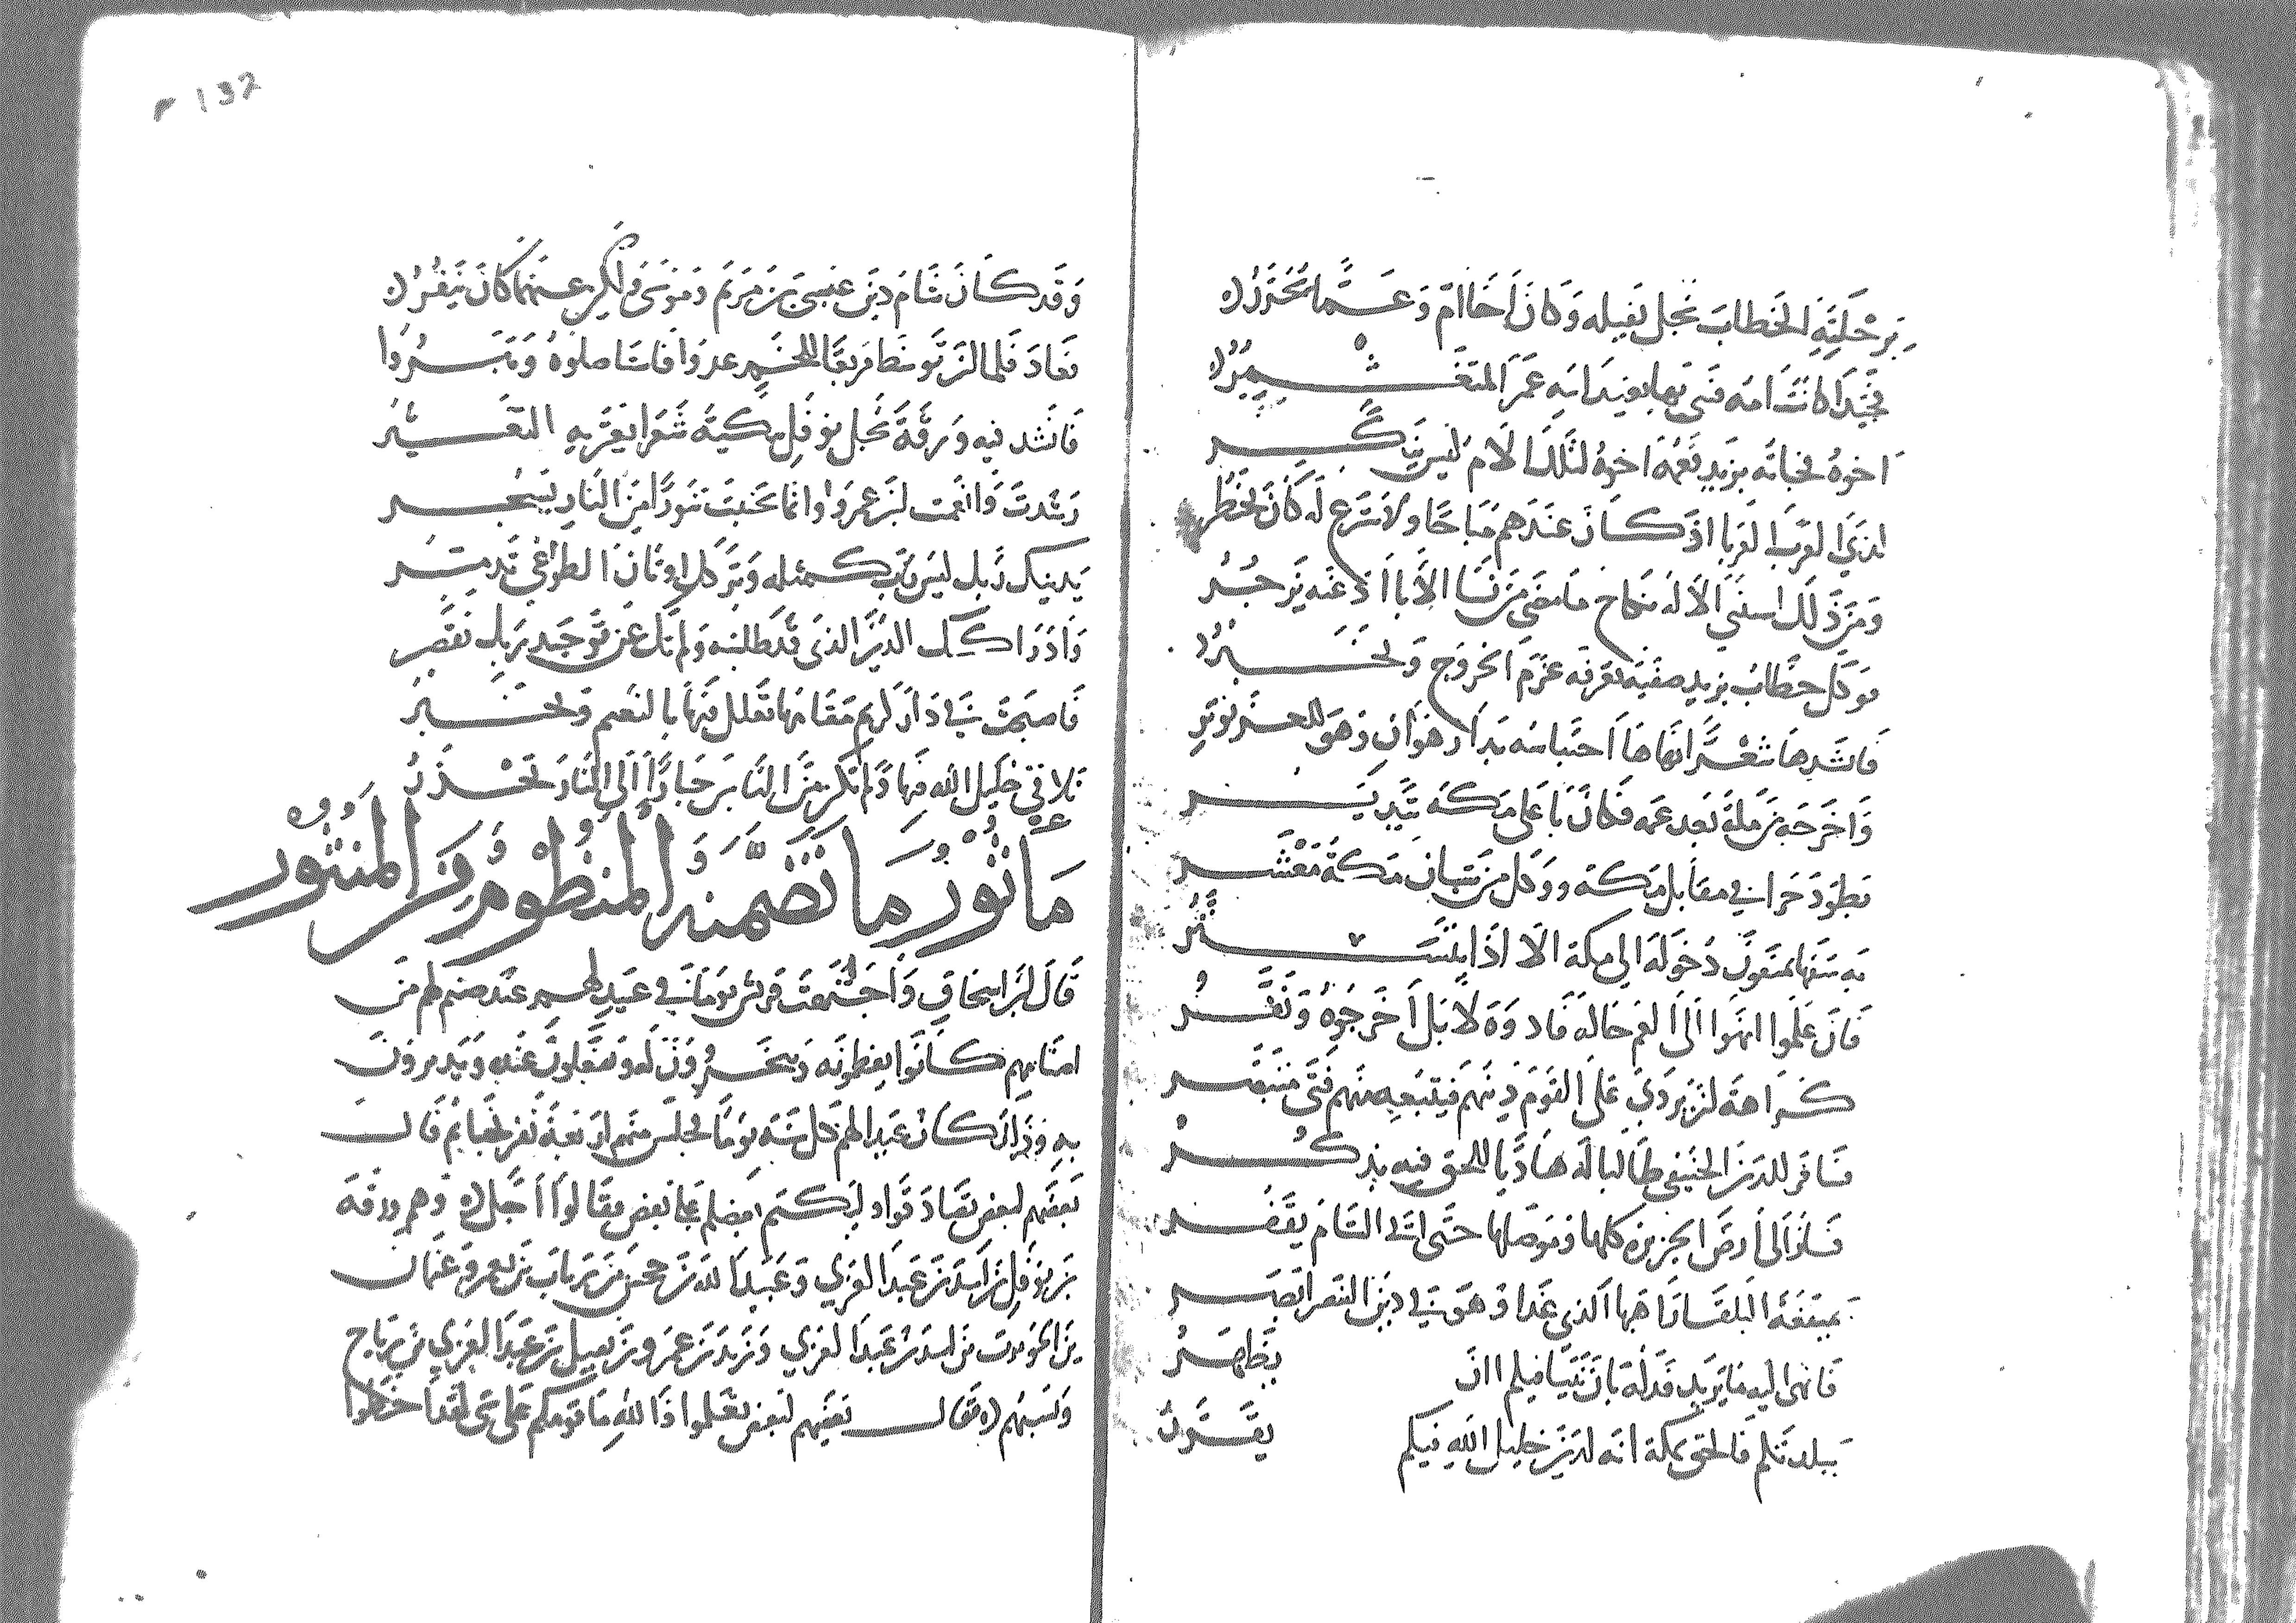 من حليته الخطاب نجل نفيله وكان اخا ام وعما يحذر
فجيدا كانت امه فتى بها بعيد ابيه عمر المتغشمر
اخوه فجاته بزيد فهو اخوه لتلك الام ليس ينكر
لدى العرب العربا اذ كان عندهم مباحا ولا شرع له كان يحظر
ومن ذلك استثني الاله نكاح ما مضى من نسا الابا اذ عنه يزجر
ووكل خطاب بزيد صفية تعرفه عزم الخروج وتخبر
فانشدها شعرا نهاها احتباسه بدار هوان وهو للعز يوثر
واخرجه من مكة بعد عمه فكان با على مكة يتدير
بطود حرا في مقابل مكة ووكل من شبان مكة معشر
به سفها يمنعون دخوله الى مكة الا اذا يتستر
فان علموا انهوا الى العم حاله فاد وه لا بل اخرجوه ونفر
كراهة لن يزدي على القوم دينهم فيتبعه منهم فتى متبصر
فسافر للدين الحنيفي طالبا له هاديا للحق فيه يذكر
فسار الى ارض الجزيرة كلها وموصلها حتى اتى الشام يقفر
بميفعة البلقا راهبها الذي غدا وهو في دين التنصر ابصر
فانهى اليه ما يريد فدله بان نبيا فيكم اان يظهر
ببلدتكم فالحق بمكة انه لدين خليل الله فيكم يقرر
r 132
وقد كان شام دين عيسى بن مريم وموسى ولكن عنهما كان ينفر
فعاد فلما ان توسط فريقا للخم عدوا فاستاصلوه وتبروا
فانشد فيه ورقة نجل نوفل بكيه شعرا يعتريه التغير
رشدت وانعمت ابن عمرو وانما تجنبت تنورا من النار يسجر
بدينك ربا ليس رب كمثله وتركك اوثان الطواغي تدمر
وادراكك الدين الذي قد طلبته ولم تك عن توحيد ربك تقصر
فاصبحت في دار كريم مقامها تعلل فيها بالنعيم وتحبر
تلاقي خليل الله فيها ولم تكن من الناس جبارا الى النار تحذر
ماثور ما تضمنه المنظوم من المنثور
قال ابن اسحاق واجتمعت قريش يوما في عيد لهم عند صنم لهم من
اصنامهم كانوا يعظمونه وينحرون له ويعكفون عنده ويديرون
به وذلك كان عيدا لهم كل سنة يوما فجلس منهم اربعة نفر نجيا ثم قال
بعضهم لبعض تصادقوا وليكتم بعضكم على بعض فقالوا اجل وهم ورقة
بن نوفل بن اسد بن عبد العزي وعبيد الله بن جحش بن رباب بن يعمر وعثمان
بن الحويرث بن اسد بن عبد العزي وزيد بن عمرو بن نفيل بن عبد العزي بن رياح
ونسبهم فقال بعضهم لبعض تعلموا والله ما قومكم على شي لقد اخطوا